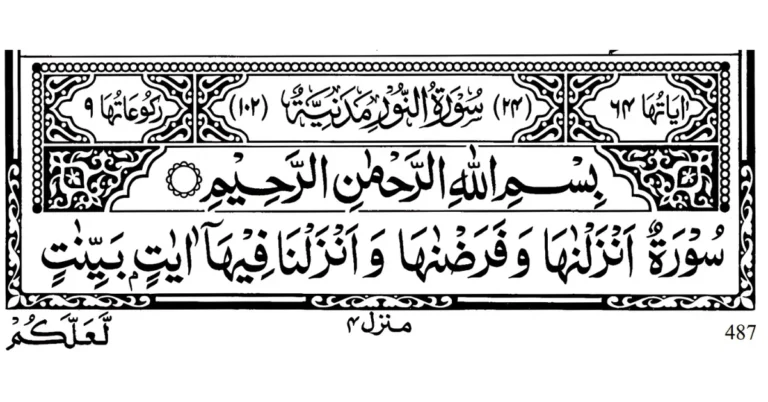 اٰيَاتُهَا ٦٤ (٢٤) سُوْرَةُ النُّوْرِ مَدَنِيَّةٌ (١٠٢) رُكُوْعَاتُهَا ٩
بِسْمِ اللهِ الرَّحْمٰنِ الرَّحِيْمِ
سُوْرَةٌ اَنْزَلْنٰهَا وَفَرَضْنٰهَا وَاَنْزَلْنَا فِيْهَاۤ اٰيٰتٍۭ بَيِّنٰتٍ
لَّعَلَّكُمْ منزل ٤ 487